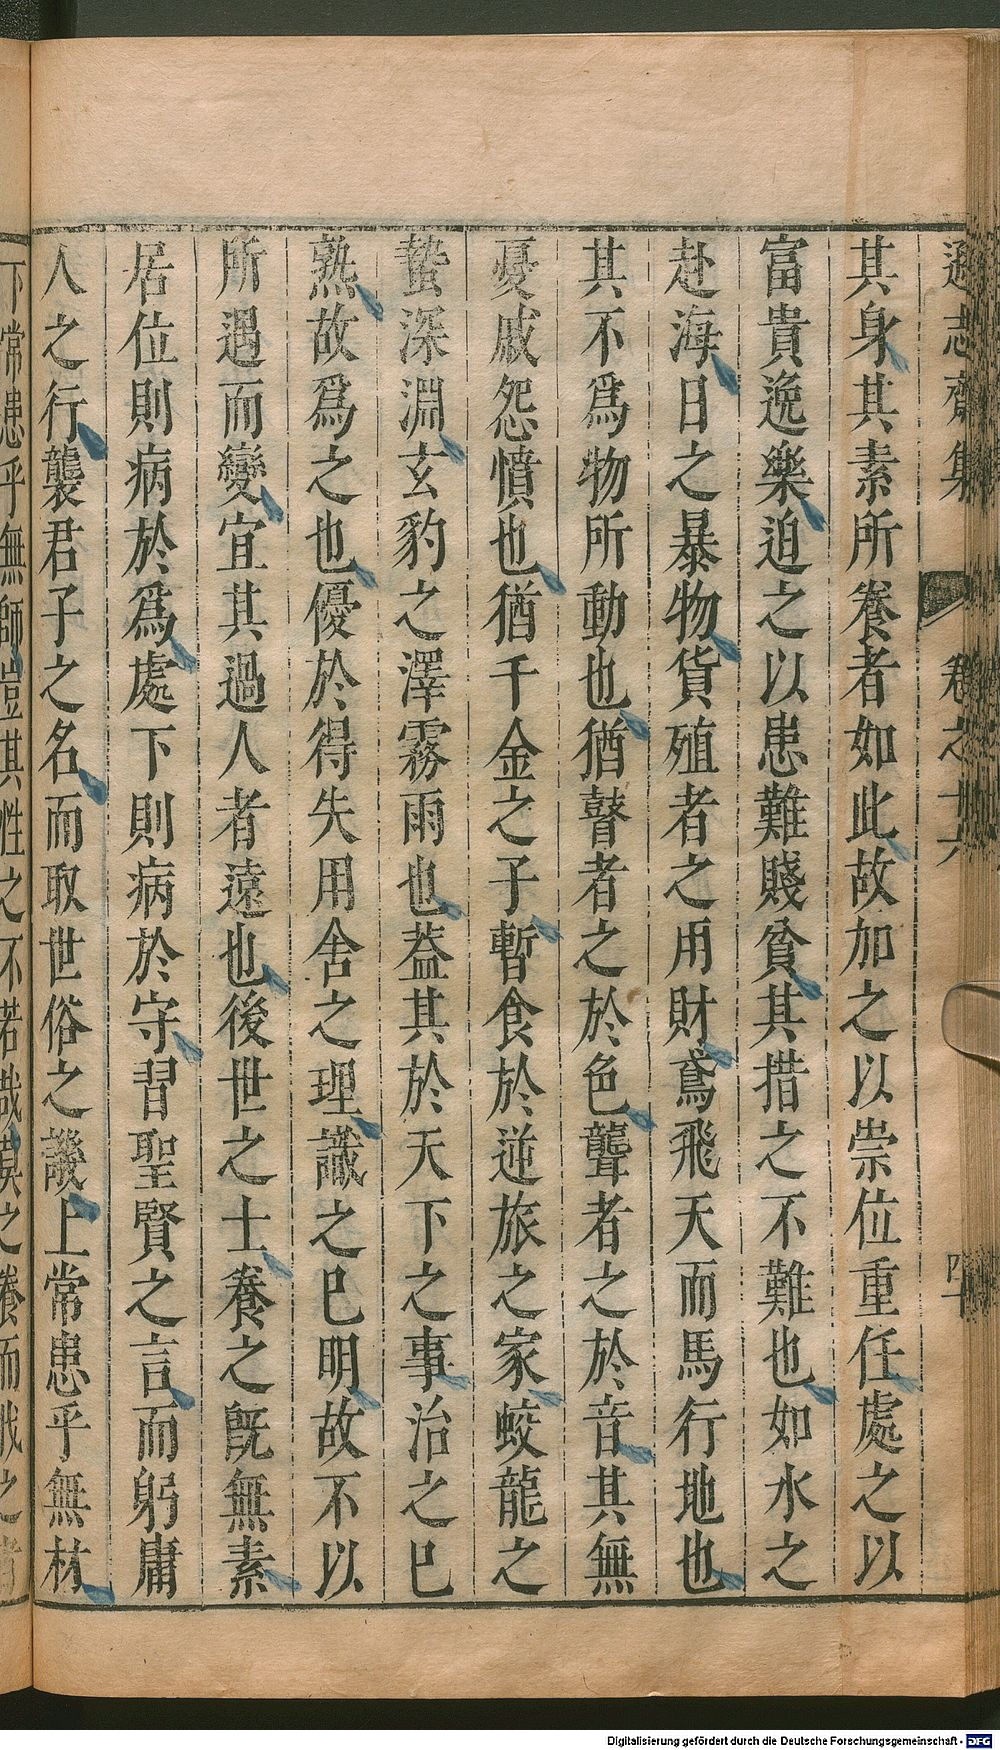 遜志齋集 卷之十六 四十
其身其素所養者如此故加之以崇位重任處之以
富貴逸樂迫之以患難賤貧其措之不難也如水之
赴海日之暴物貨殖者之用財鳶飛天而馬行地也
其不爲物所動也猶瞽者之於色聾者之於音其無
憂戚怨憤也猶千金之子暫食於逆旅之家蛟龍之
蟄深淵玄豹之澤霧雨也葢其於天下之事治之巳
熟故爲之也優於得失用舍之理識之巳明故不以
所遇而變宜其過人者遠也後世之士養之旣無素
居位則病於爲處下則病於守習聖賢之言而躬庸
人之行襲君子之名而取世俗之譏上常患乎無材
下常患乎無師豈其性之不若哉莫之養而戕之者
Digitalisierung gefördert durch die Deutsche Forschungsgemeinschaft - DFG